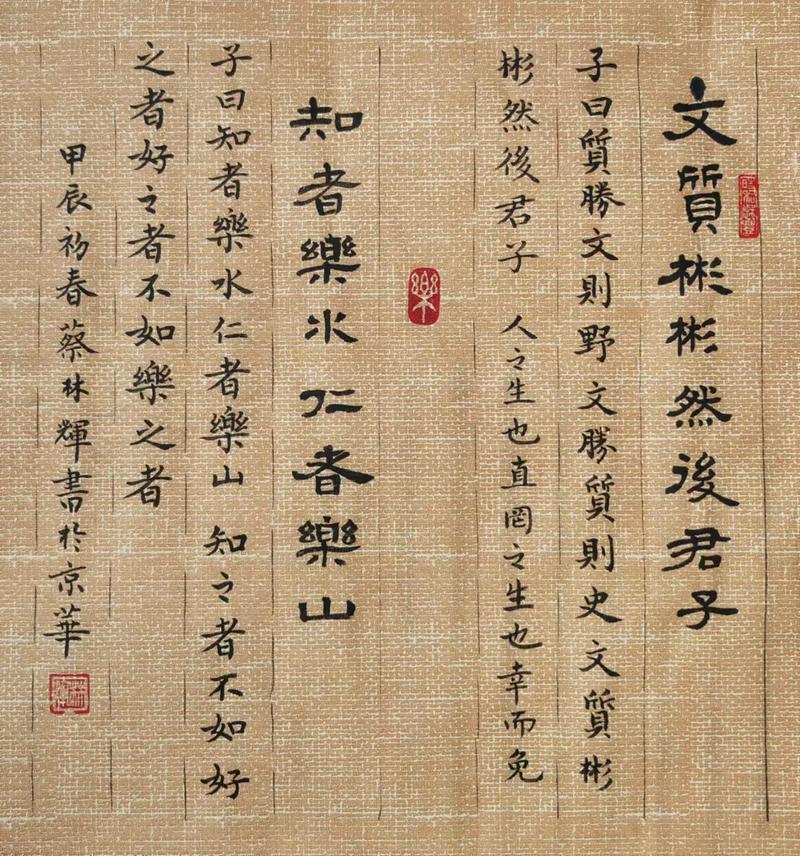 文質彬彬然後君子
子曰質勝文則野文勝質則史文質彬
彬然後君子 人之生也直罔之生也幸而免
樂
知者樂水仁者樂山
子曰知者樂水仁者樂山 知之者不如好
之者好之者不如樂之者
甲辰初春蔡林輝書於京華